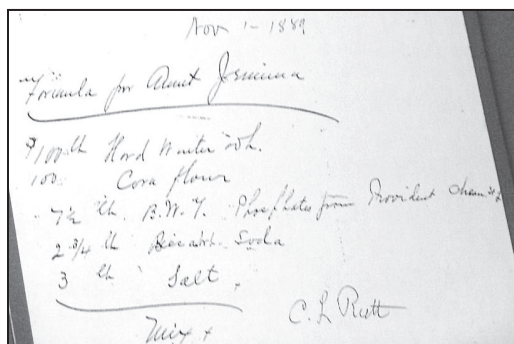 Nov 1 - 1889
Formula for Aunt Jemima
100 lb Hard Winter Wh.
100 Corn flour
7½ lb. B.W.T. Phosphates from Provident Chem
2 3/4 lb Bicarb. Soda
3 lb Salt.
Mix
C. L. Rutt